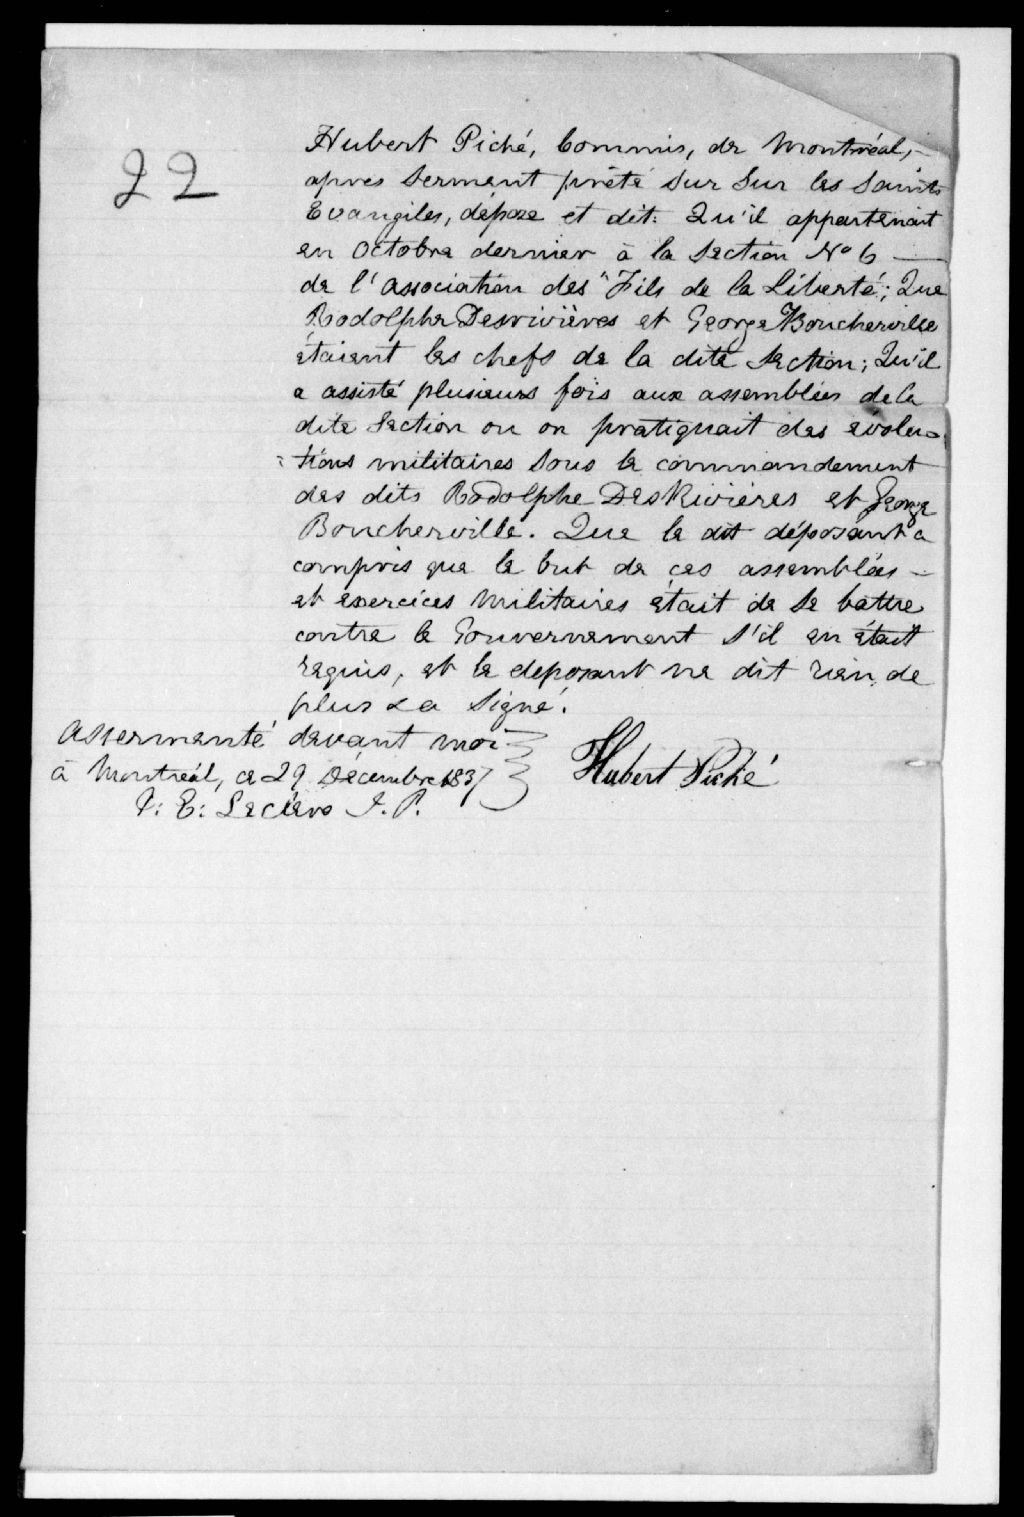 22
Hubert Piché, Commis, de Montréal,
apres serment prêté sur sur les Saints
Evangiles, dépose et dit: Qu'il appartenait
en Octobre dernier à la section No 6 —
de l'association des "Fils de la Liberté; Que
Rodolphe Desrivières et George Boucherville
étaient les chefs de la dite section; Qu'il
a assisté plusieurs fois aux assemblées de la
dite section ou on pratiquait des evolu=
=tions militaires sous le commandement
des dits Rodolphe DesRivières et George
Boucherville. Que le dit déposant a
compris que le but de ces assemblées —
et exercices militaires était de se battre
contre le Gouvernement s'il en était
requis, et le deposant ne dit rien de
plus & a signé.
Assermenté devant moi
à Montréal, ce 29 Décembre 1837
Hubert Piché
P: E: Leclere J. P.